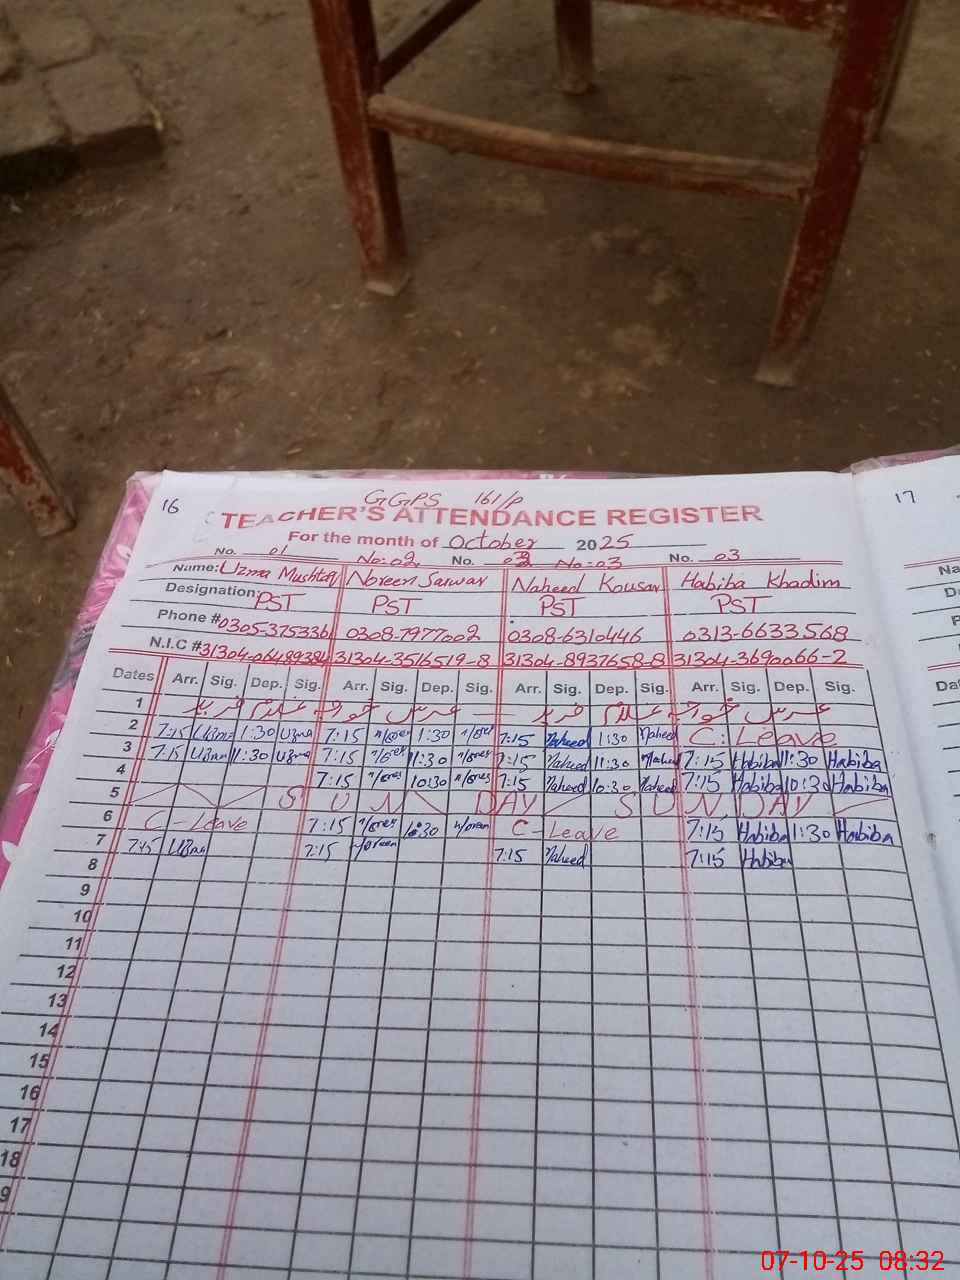 16
17
GGPS 161/P
TEACHER'S ATTENDANCE REGISTER
For the month of October 2025
No. 01 No:02 No. 03 No:03 No. 03
Name: Uzma Mushtaq Noreen Sarwar Naheed Kousar Habiba Khadim
Designation: PST PST PST PST
Phone # 0305-375336 0308-7977002 0308-6310446 0313-6633568
N.I.C # 31304-3516519-8 31304-8937658-8 31304-3690066-2
Dates Arr. Sig. Dep. Sig. Arr. Sig. Dep. Sig. Arr. Sig. Dep. Sig. Arr. Sig. Dep. Sig.
1 عرس خواجہ غلام فرید عرس خواجہ غلام فرید
2 7:15 Uzma 1:30 Uzma 7:15 1:30 7:15 Naheed 1:30 Naheed C: Leave
3 7:15 Uzma 11:30 Uzma 7:15 11:30 7:15 Naheed 11:30 Naheed 7:15 Habiba 11:30 Habiba
4 7:15 10:30 7:15 Naheed 10:30 Naheed 7:15 Habiba 10:30 Habiba
5 SUNDAY SUNDAY
6 C-Leave 7:15 Noreen C-Leave 7:15 Habiba 1:30 Habiba
7 7:15 Uzma 7:15 Noreen 7:15 Naheed 7:15 Habiba
8
9
10
11
12
13
14
15
16
17
18
9
Na
De
P
Dat
07-10-25 08:32